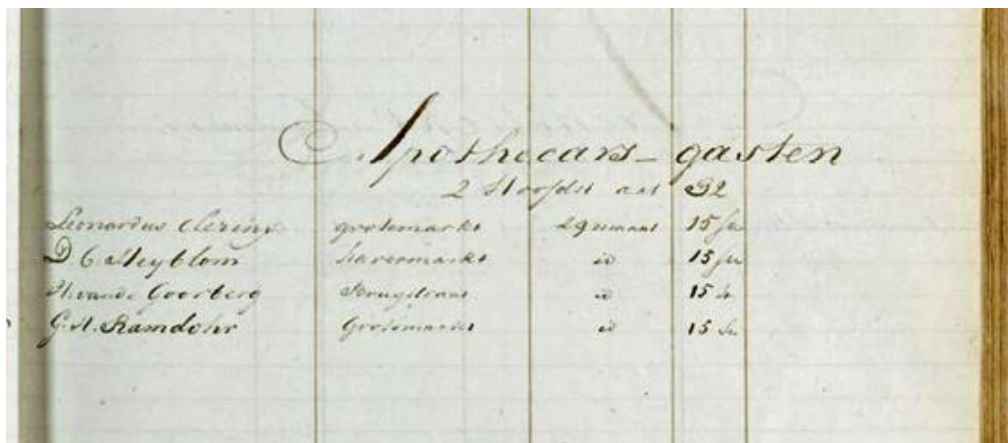 Apothecars-gasten
2 Hoofdst art 32
Leonardus Clerinx grotemarkt 29 maart 15 fr
D. C. Meyblom havermarkt id 15 fr
H. vande Goorberg Brugstraat id 15 fr
G. A. Ramdohr Grotemarkt id 15 fr